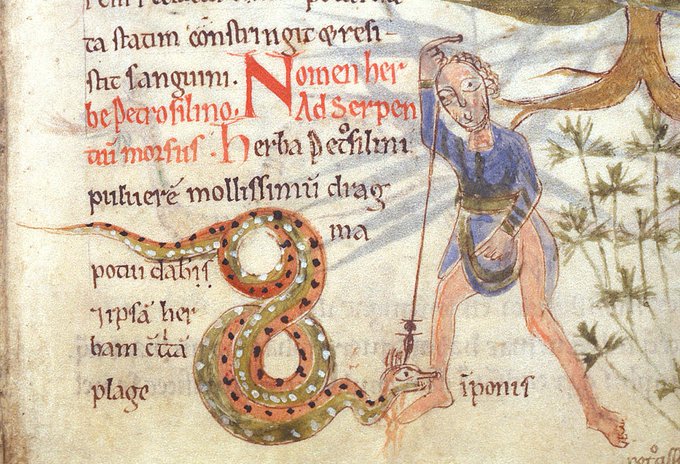 ta statim constringit & resi-
stit sanguini. Nomen her
be petrosilino. Ad serpen
tiū morsus. herba petͦsilini
puluerē mollissimū drag
ma
potui dabis
⁊ ipsā her
bam c̄tͣ
plage īponis